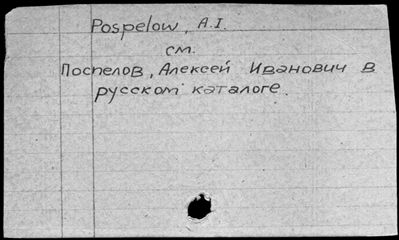 Pospelow, A.I.
см.
Поспелов, Алексей Иванович в
русском каталоге.